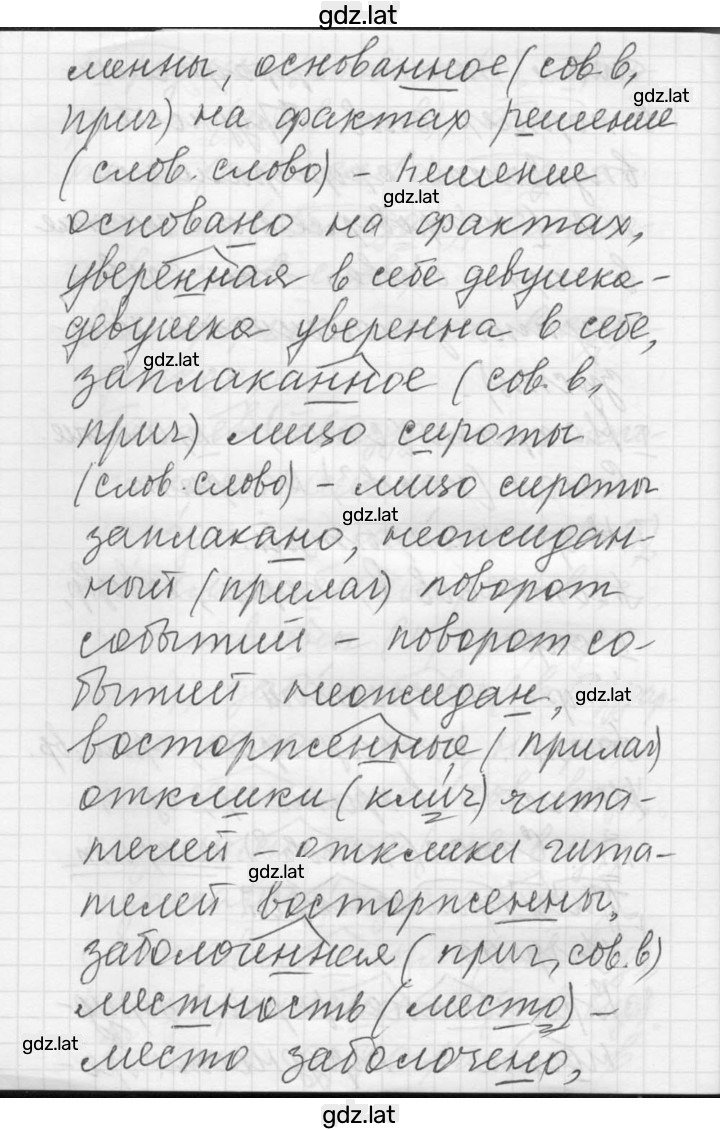 gdz.lat
менны, основанное (сов. в,
gdz.lat
прич) на фактах решение
(слов. слово) - решение
gdz.lat
основано на фактах,
уверенная в себе девушка -
девушка уверенна в себе,
gdz.lat
заплаканное (сов. в,
прич) лицо сироты
(слов. слово) - лицо сироты
gdz.lat
заплакано, неожидан-
ный (прилаг) поворот
событий - поворот со-
бытий неожидан,
gdz.lat
восторженные (прилаг)
отклики (кли́ч) чита-
телей - отклики чита-
gdz.lat
телей восторженны,
заболоченная (прич, сов. в)
местность (место) -
gdz.lat
место заболочено,
gdz.lat